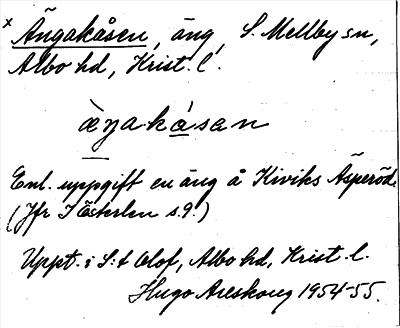 x Ängakåsen, äng, S. Mellby sn,
Albo hd, Krist. l.
æ̀ŋakȧsan
Enl. uppgift en äng å Kiviks Äsperöd.
(Jfr I Österlen s. 9.)
Uppt. i S:t Olof, Albo hd, Krist. l.
Hugo Areskoug 1954-55.